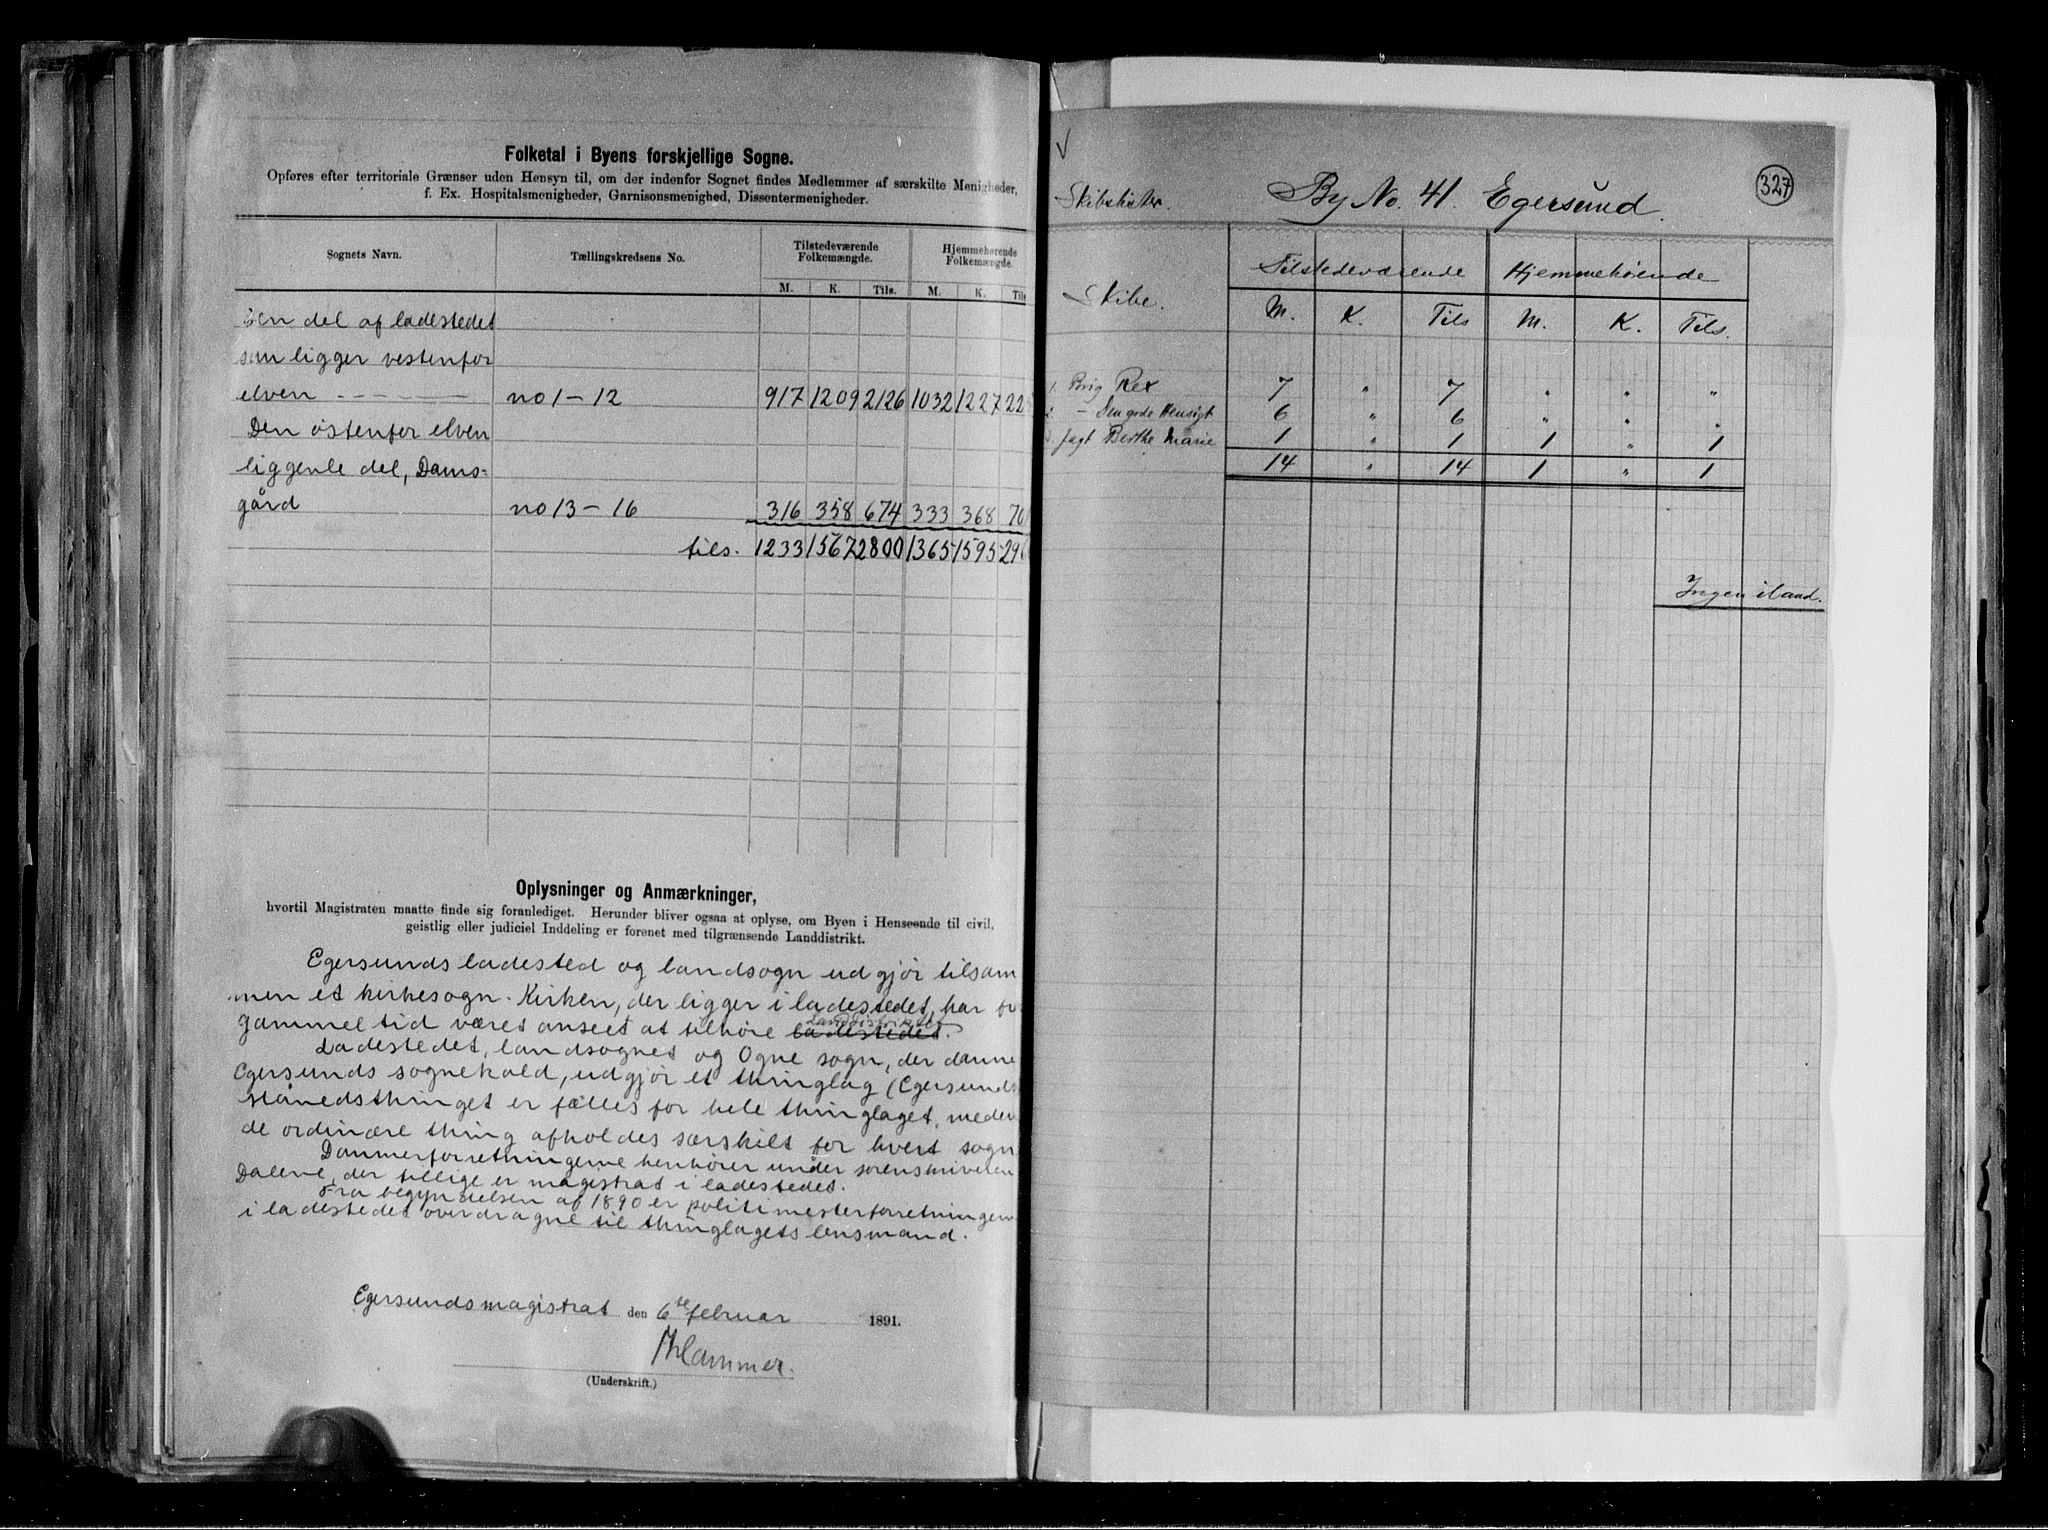 Folketal i Byens forskjellige Sogne.
Opføres efter territoriale Grænser uden Hensyn til, om der indenfor Sognet findes Medlemmer af særskilte Menigheder,
f. Ex. Hospitalsmenigheder, Garnisonsmenighed, Dissentermenigheder.
Sognets Navn. Tællingskredsens No. Tilstedeværende Folkemængde. Hjemmehørende Folkemængde.
M. K. Tils. M. K. Tils
Den del af ladestedet
som ligger vestenfor
elven - - - - no 1 - 12 917 1209 2126 1032 1227 22
Den østenfor elven
liggende del, Dams-
gård no 13 - 16 316 358 674 333 368 701
tils. 1233 1567 2800 1365 1595 29
Oplysninger og Anmærkninger,
hvortil Magistraten maatte finde sig foranlediget. Herunder bliver ogsaa at oplyse, om Byen i Henseende til civil,
geistlig eller judiciel Inddeling er forenet med tilgrænsende Landdistrikt.
Egersunds ladested og landsogn udgjør tilsam
men et kirkesogn. Kirken, der ligger i ladestedet, har
gammel tid været anseet at tilhøre ladestedet Landdistriktet.
Ladestedet, landsognet og Ogne sogn, der danne
Egersunds sognekald, udgjør et thinglag (Egersunds
Månedsthinget er fælles for hele thinglaget, meden
de ordinære thing afholdes særskilt for hvert sogn
Dommerforretningerne henhører under sorenskriveren
Dalene, der tillige er magistrat i ladestedet.
Fra begyndelsen af 1890 er politimesterforretningen
i ladestedet overdragne til thinglagets lensmand.
Egersunds magistrat den 6te februar 1891.
Hammer.
(Underskrift.)
327
Skibslister. By No. 41. Egersund.
Skibe. Tilstedeværende Hjemmehørende
M. K. Tils M. K. Tils.
1. Brig Rex 7 " 7 " " "
2. - Den gode Hensigt 6 " 6 " " "
3. Jagt Berthe Marie 1 " 1 1 " 1
14 " 14 1 " 1
Ingen iland.